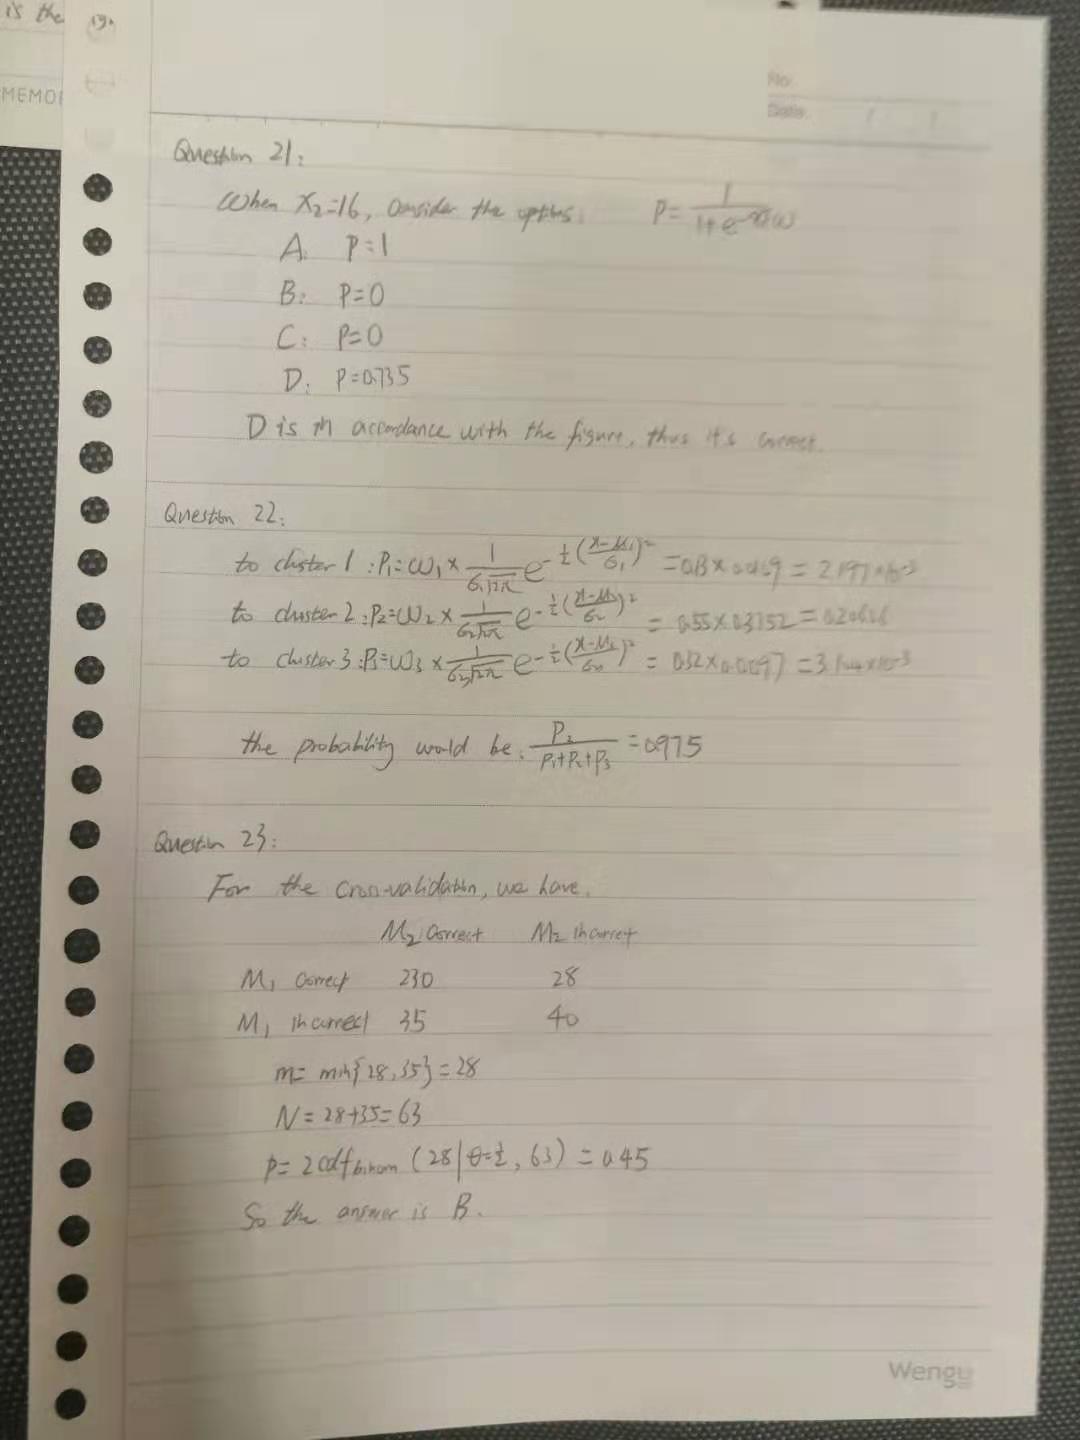 is the
19.
MEMO
No
Date
Question 21:
When X₂=16, consider the options. P= 1/(1+e^
A. P=1
B: P=0
C: P=0
D. P=0.735
D is in accordance with the figure, thus it's correct.
Question 22:
to cluster 1 : P₁=ω₁ × 1/(σ₁√2π) e^-½((x-μ₁)/σ₁)² = 0.13 ×
to cluster 2 : P₂=ω₂ × 1/(σ₂√2π) e^-½((x-μ₂)/σ₂)² = 0.55×0.3752 =
to cluster 3 : P₃=ω₃ × 1/(σ₃√2π) e^-½(
the probability would be: P₂/(P₁+P₂+P₃) = 0.975
Question 23:
For the cross-validation, we have.
M₂ correct M₂ incorrect
M₁ correct 230 28
M₁ incorrect 35 40
m= min{28,35}=28
N=28+35=63
p= 2cdf binom (28|θ=½, 63) = 0.45
So the answer is B.
Wengu